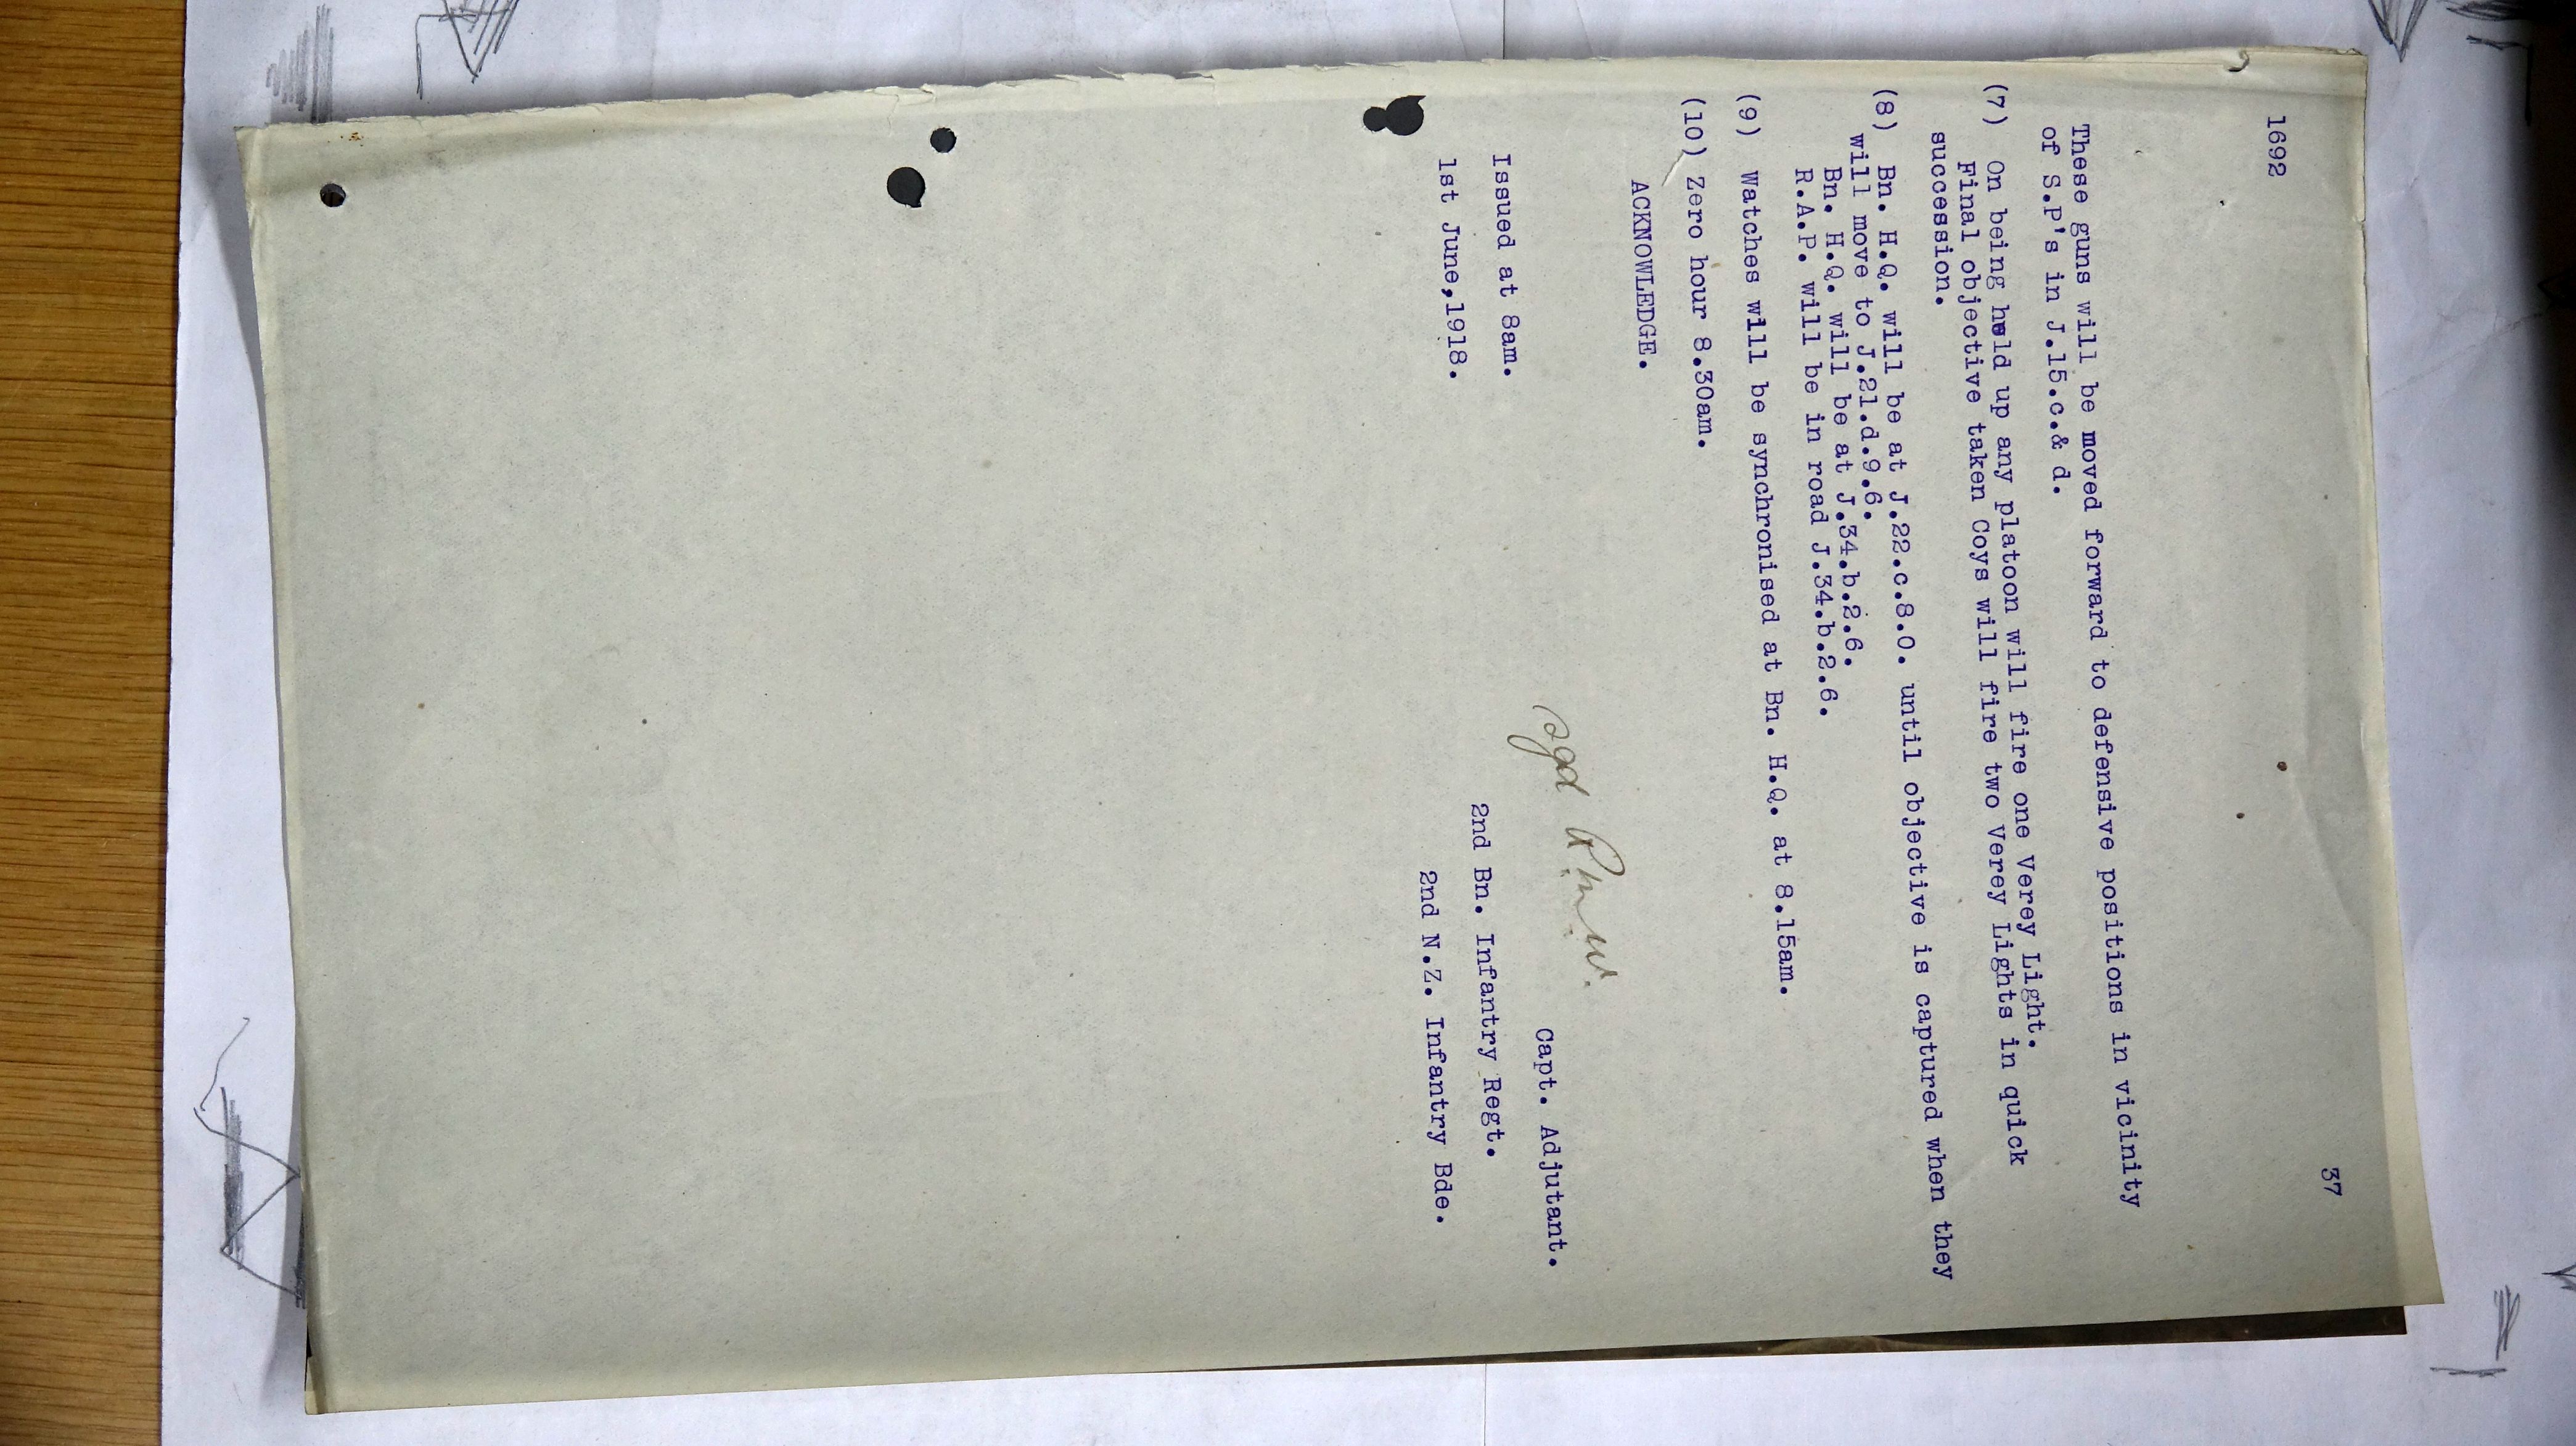 1692
37
These guns will be moved forward to defensive positions in vicinity
of S.P's in J.15.c.& d.
(7) On being held up any platoon will fire one Verey Light.
Final objective taken Coys will fire two Verey Lights in quick
succession.
(8) Bn. H.Q. will be at J.22.c.8.0. until objective is captured when they
will move to J.21.d.9.6.
Bn. H.Q. will be at J.34.b.2.6.
R.A.P. will be in road J.34.b.2.6.
(9) Watches will be synchronised at Bn. H.Q. at 8.15am.
(10) Zero hour 8.30am.
ACKNOWLEDGE.
sgd
Capt. Adjutant.
Issued at 8am.
2nd Bn. Infantry Regt.
1st June,1918.
2nd N.Z. Infantry Bde.